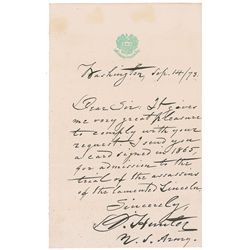 Washington, Sep. 14/73.
Dear Sir: It gives
me very great pleasure
to comply with your
request. I send you
a card signed in 1865
for admission to the
trial of the assassins
of the lamented Lincoln.
Sincerely,
D. Hunter
U. S. Army.